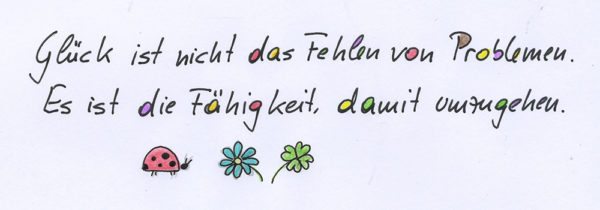 Glück ist nicht das Fehlen von Problemen.
Es ist die Fähigkeit, damit umzugehen.